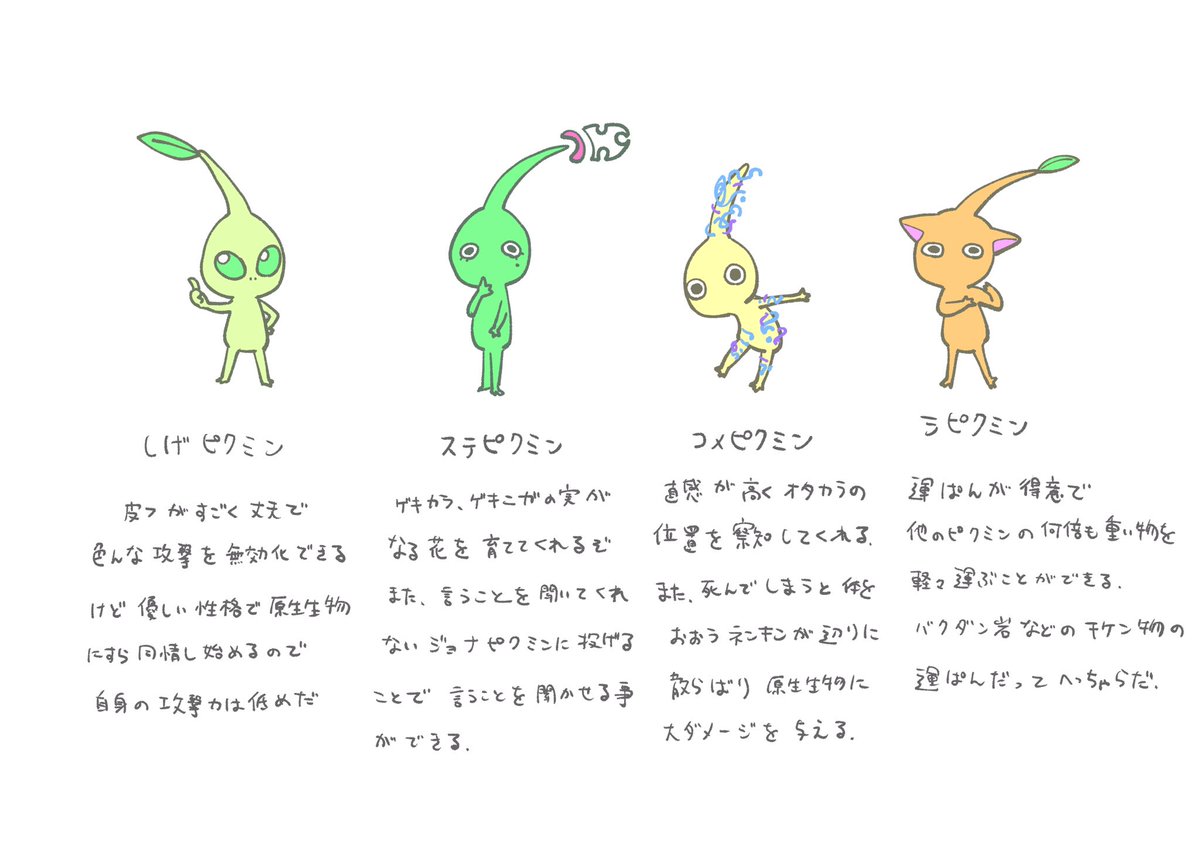 しげピクミン
皮フがすごく丈夫で
色んな攻撃を無効化できる
けど優しい性格で原生生物
にすら同情し始めるので
自身の攻撃力は低めだ
ステピクミン
ゲキカラ、ゲキニガの実が
なる花を育ててくれるぞ
また、言うことを聞いてくれ
ないジョナピクミンに投げる
ことで言うことを聞かせる事
ができる.
コメピクミン
直感が高くオタカラの
位置を察知してくれる.
また、死んでしまうと体を
おおうネンキンが辺りに
散らばり原生生物に
大ダメージを与える.
ラピクミン
運ぱんが得意で
他のピクミンの何倍も重い物を
軽々運ぶことができる.
バクダン岩などのキケン物の
運ぱんだってへっちゃらだ.